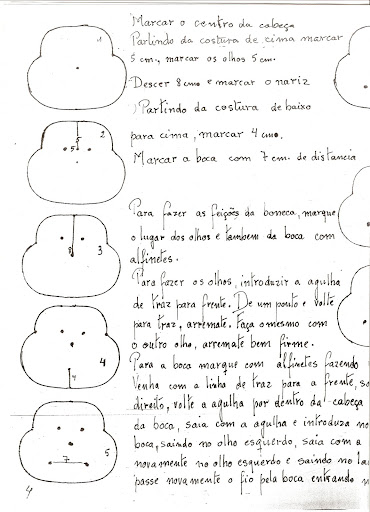 Marcar o centro da cabeça
Partindo da costura de cima marcar
5 cm, marcar os olhos 5 cm.
Descer 8 cm e marcar o nariz
Partindo da costura debaixo
para cima, marcar 4 cm.
Marcar a boca com 7 cm. de distancia
Para fazer as feições da boneca, marque
o lugar dos olhos e tambem da boca com
alfinetes.
Para fazer os olhos, introduzir a agulha
de traz para frente. De um ponto e volte
para traz, arremate. Faça o mesmo com
o outro olho, arremate bem firme.
Para a boca marque com alfinetes fazendo
Venha com a linha de traz para a frente, so
direito, volte a agulha por dentro da cabeça
da boca, saia com a agulha e introduza no
boca, saindo no olho esquerdo, saia com a
novamente no olho esquerdo e saindo no la
passe novamente o fio pela boca entrando n
1
2
5
5
3
8
4
4
5
7
4